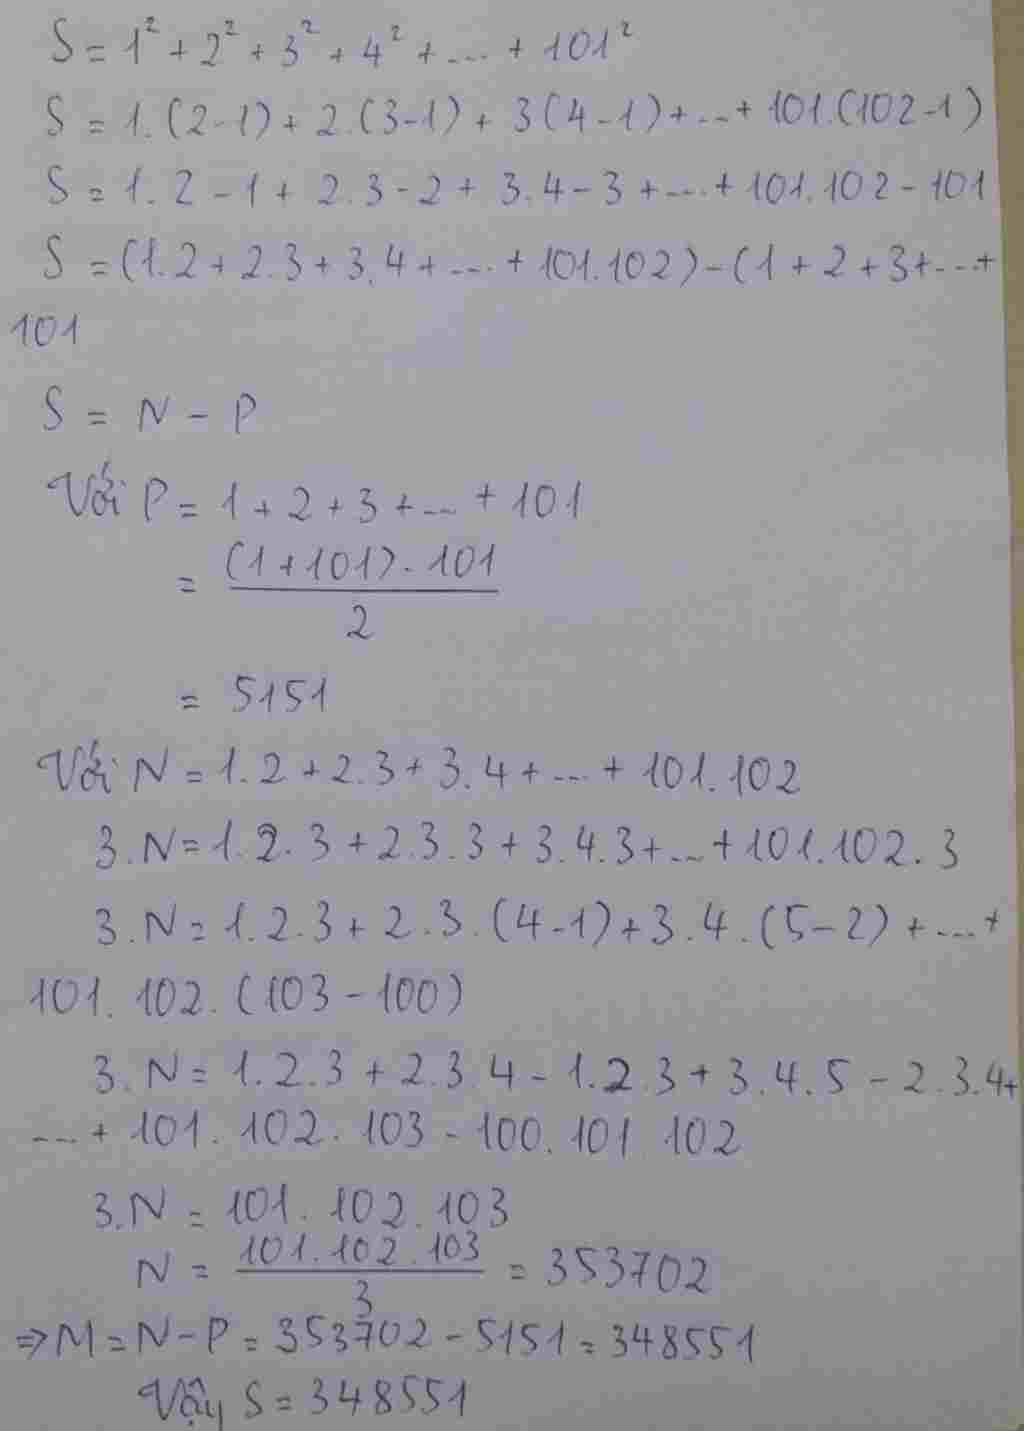 S = 1² + 2² + 3² + 4² + ... + 101²
S = 1.(2-1) + 2.(3-1) + 3(4-1) + ... + 101.(102-1)
S = 1.2 - 1 + 2.3 - 2 + 3.4 - 3 + ... + 101.102 - 101
S = (1.2 + 2.3 + 3.4 + ... + 101.102) - (1 + 2 + 3 + ... +
101
S = N - P
Với P = 1 + 2 + 3 + ... + 101
= (1+101).101 / 2
= 5151
Với N = 1.2 + 2.3 + 3.4 + ... + 101.102
3.N = 1.2.3 + 2.3.3 + 3.4.3 + ... + 101.102.3
3.N = 1.2.3 + 2.3.(4-1) + 3.4.(5-2) + ... +
101.102.(103-100)
3.N = 1.2.3 + 2.3.4 - 1.2.3 + 3.4.5 - 2.3.4 +
... + 101.102.103 - 100.101.102
3.N = 101.102.103
N = 101.102.103 / 3 = 353702
⇒ M = N - P = 353702 - 5151 = 348551
Vậy S = 348551